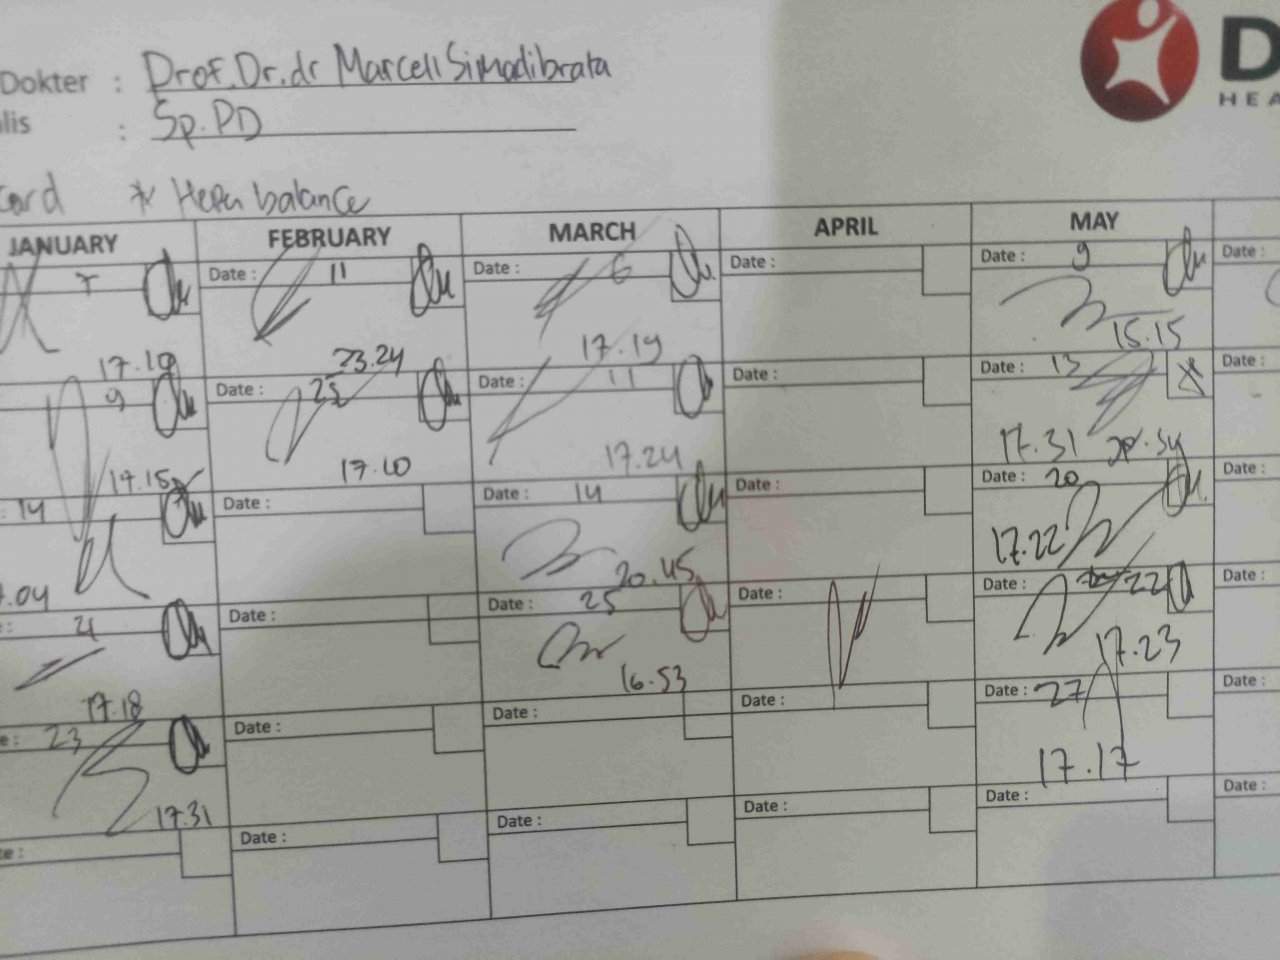 Dokter : Prof. Dr. dr Marcell Simadibrata
lis : Sp. PD
Card * Hepar balance
D
HEA
JANUARY FEBRUARY MARCH APRIL MAY
7 Date : 11 Date : 6 Date : Date : 9 Date :
17.19 23.24 17.19 15.15
9 Date : 25 Date : 11 Date : Date : 13 Date :
17.15 17.10 17.24 17.31
: 14 Date : Date : 14 Date : Date : 20 Date :
.04 20.45 17.22
: 21 Date : Date : 25 Date : Date : 22 Date :
17.18 16.53 17.23
e : 23 Date : Date : Date : Date : 27 Date :
17.31 17.17
te : Date : Date : Date : Date : Date :